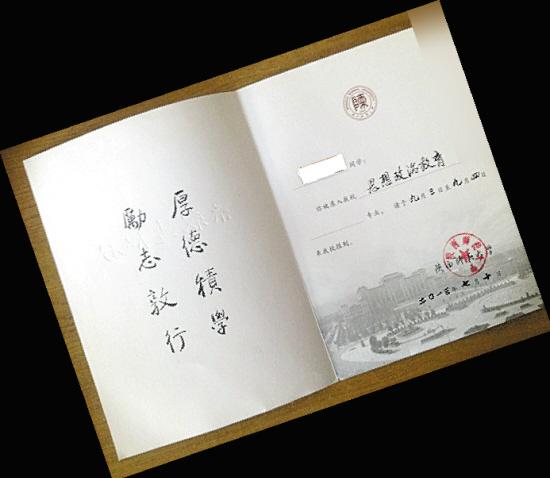 厚德積學
勵志敦行
陝
同学:
你被录入我校 思想政治教育
专业。请于九月三日至九月四日
来我校报到。
陕西师范大学
二〇一三年七月十日